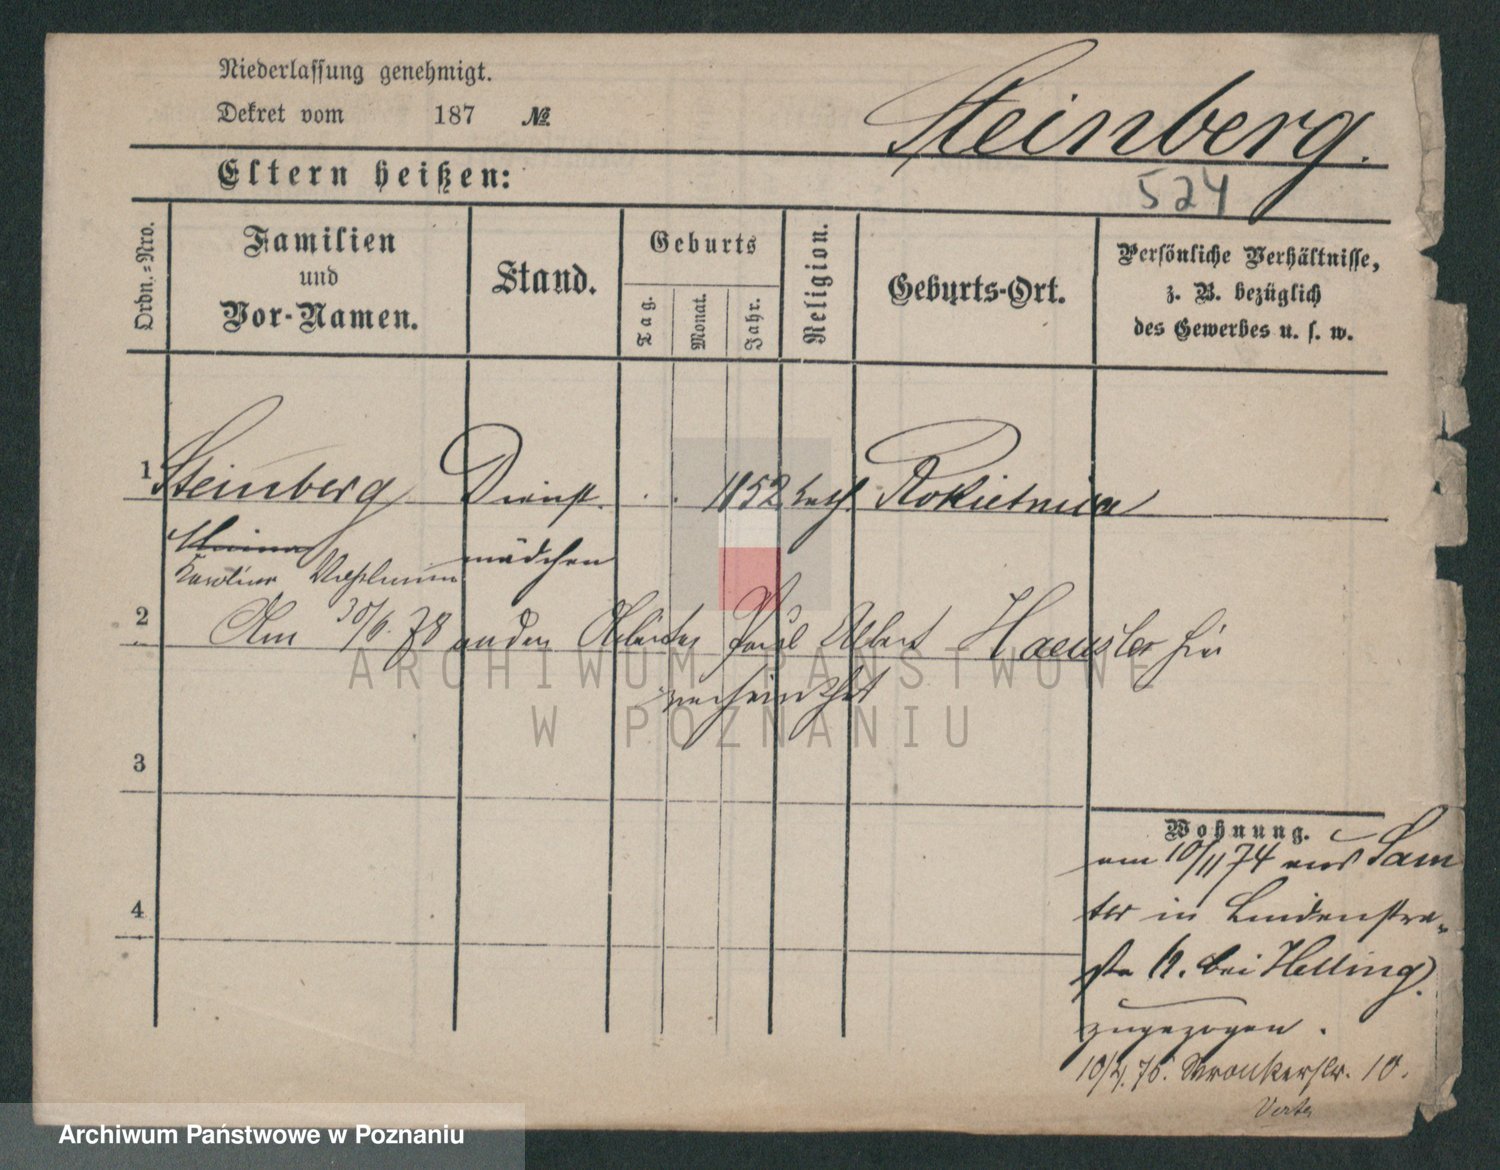 Niederlassung genehmigt.
Dekret vom 187 №
Steinberg.
Eltern heißen:
524
Ordn.=Nro.
Familien
und
Vor-Namen.
Stand.
Geburts
Tag.
Monat.
Jahr.
Religion.
Geburts-Ort.
Persönliche Verhältnisse,
z. B. bezüglich
des Gewerbes u. s. w.
1 Steinberg Dienst 1852 kath. Rokietnica
Minna mädchen
Karoline Wilhelmine
2 Am 30/6. 78 an den Arbeiter Paul Albert Haeusler hier
verheirathet
ARCHIWUM PAŃSTWOWE
W POZNANIU
3
4
Wohnung.
am 10/11 74 aus Sam
ter in Lindenstra-
ße 12. bei Helling
zugezogen.
10/2. 75. Wronkerstr. 10.
Archiwum Państwowe w Poznaniu